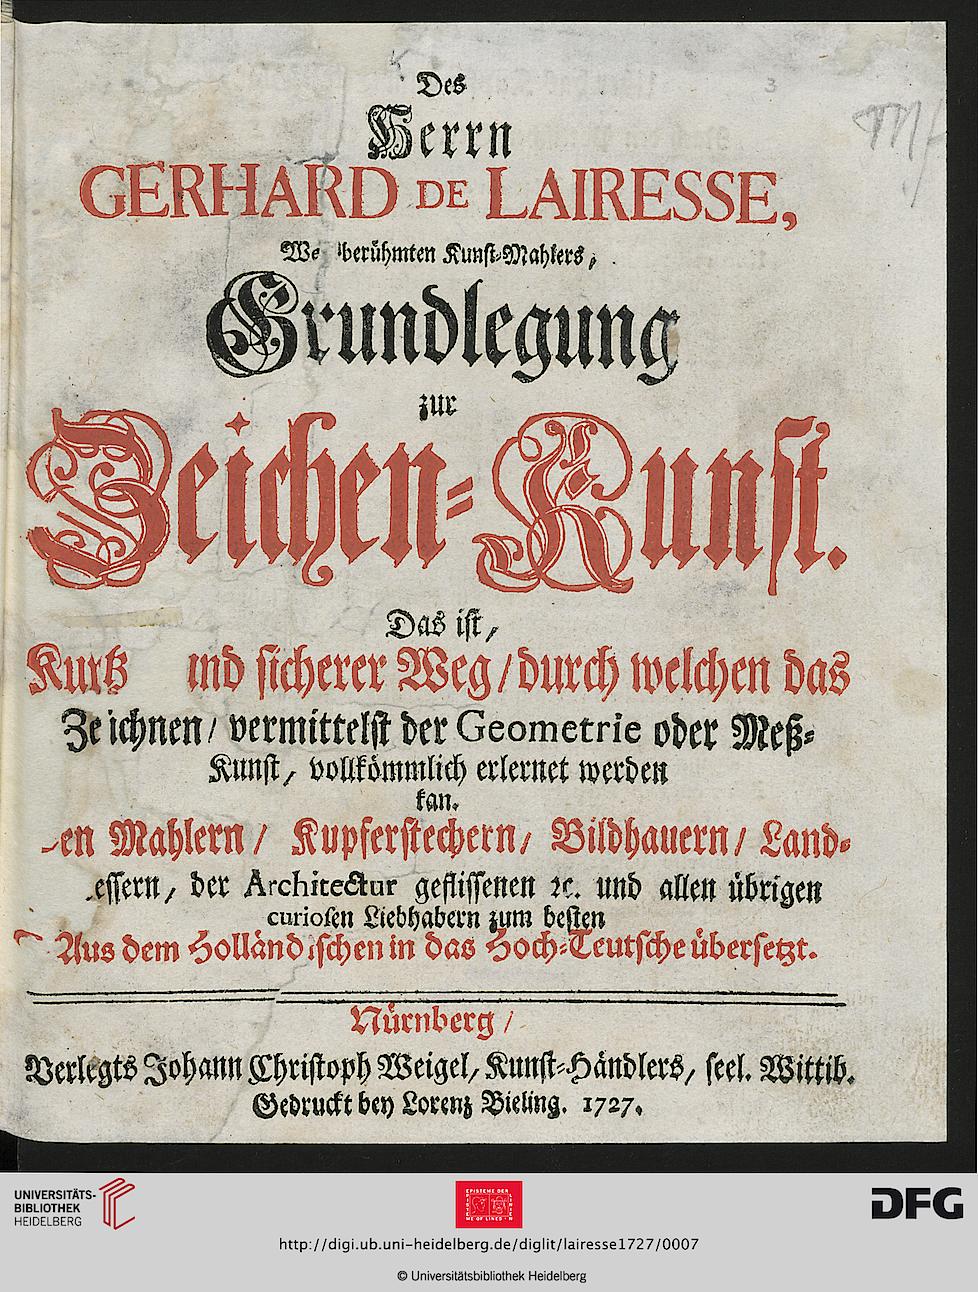 Des
Herrn
GERHARD DE LAIRESSE,
berühmten Kunst-Mahlers,
Grundlegung
zur
Zeichen-Kunst.
Das ist,
Kurtz und sicherer Weg / durch welchen das
Zeichnen / vermittelst der Geometrie oder Meß-
Kunst, vollkömmlich erlernet werden
kan.
en Mahlern / Kupferstechern / Bildhauern / Land-
essern, der Architectur geflissenen ꝛc. und allen übrigen
curiosen Liebhabern zum besten
Aus dem Holländischen in das Hoch-Teutsche übersetzt.
Nürnberg /
Verlegts Johann Christoph Weigel, Kunst-Händlers, seel. Wittib.
Gedruckt bey Lorenz Bieling. 1727.
UNIVERSITÄTS-
BIBLIOTHEK
HEIDELBERG
DFG
http://digi.ub.uni-heidelberg.de/diglit/lairesse1727/0007
© Universitätsbibliothek Heidelberg